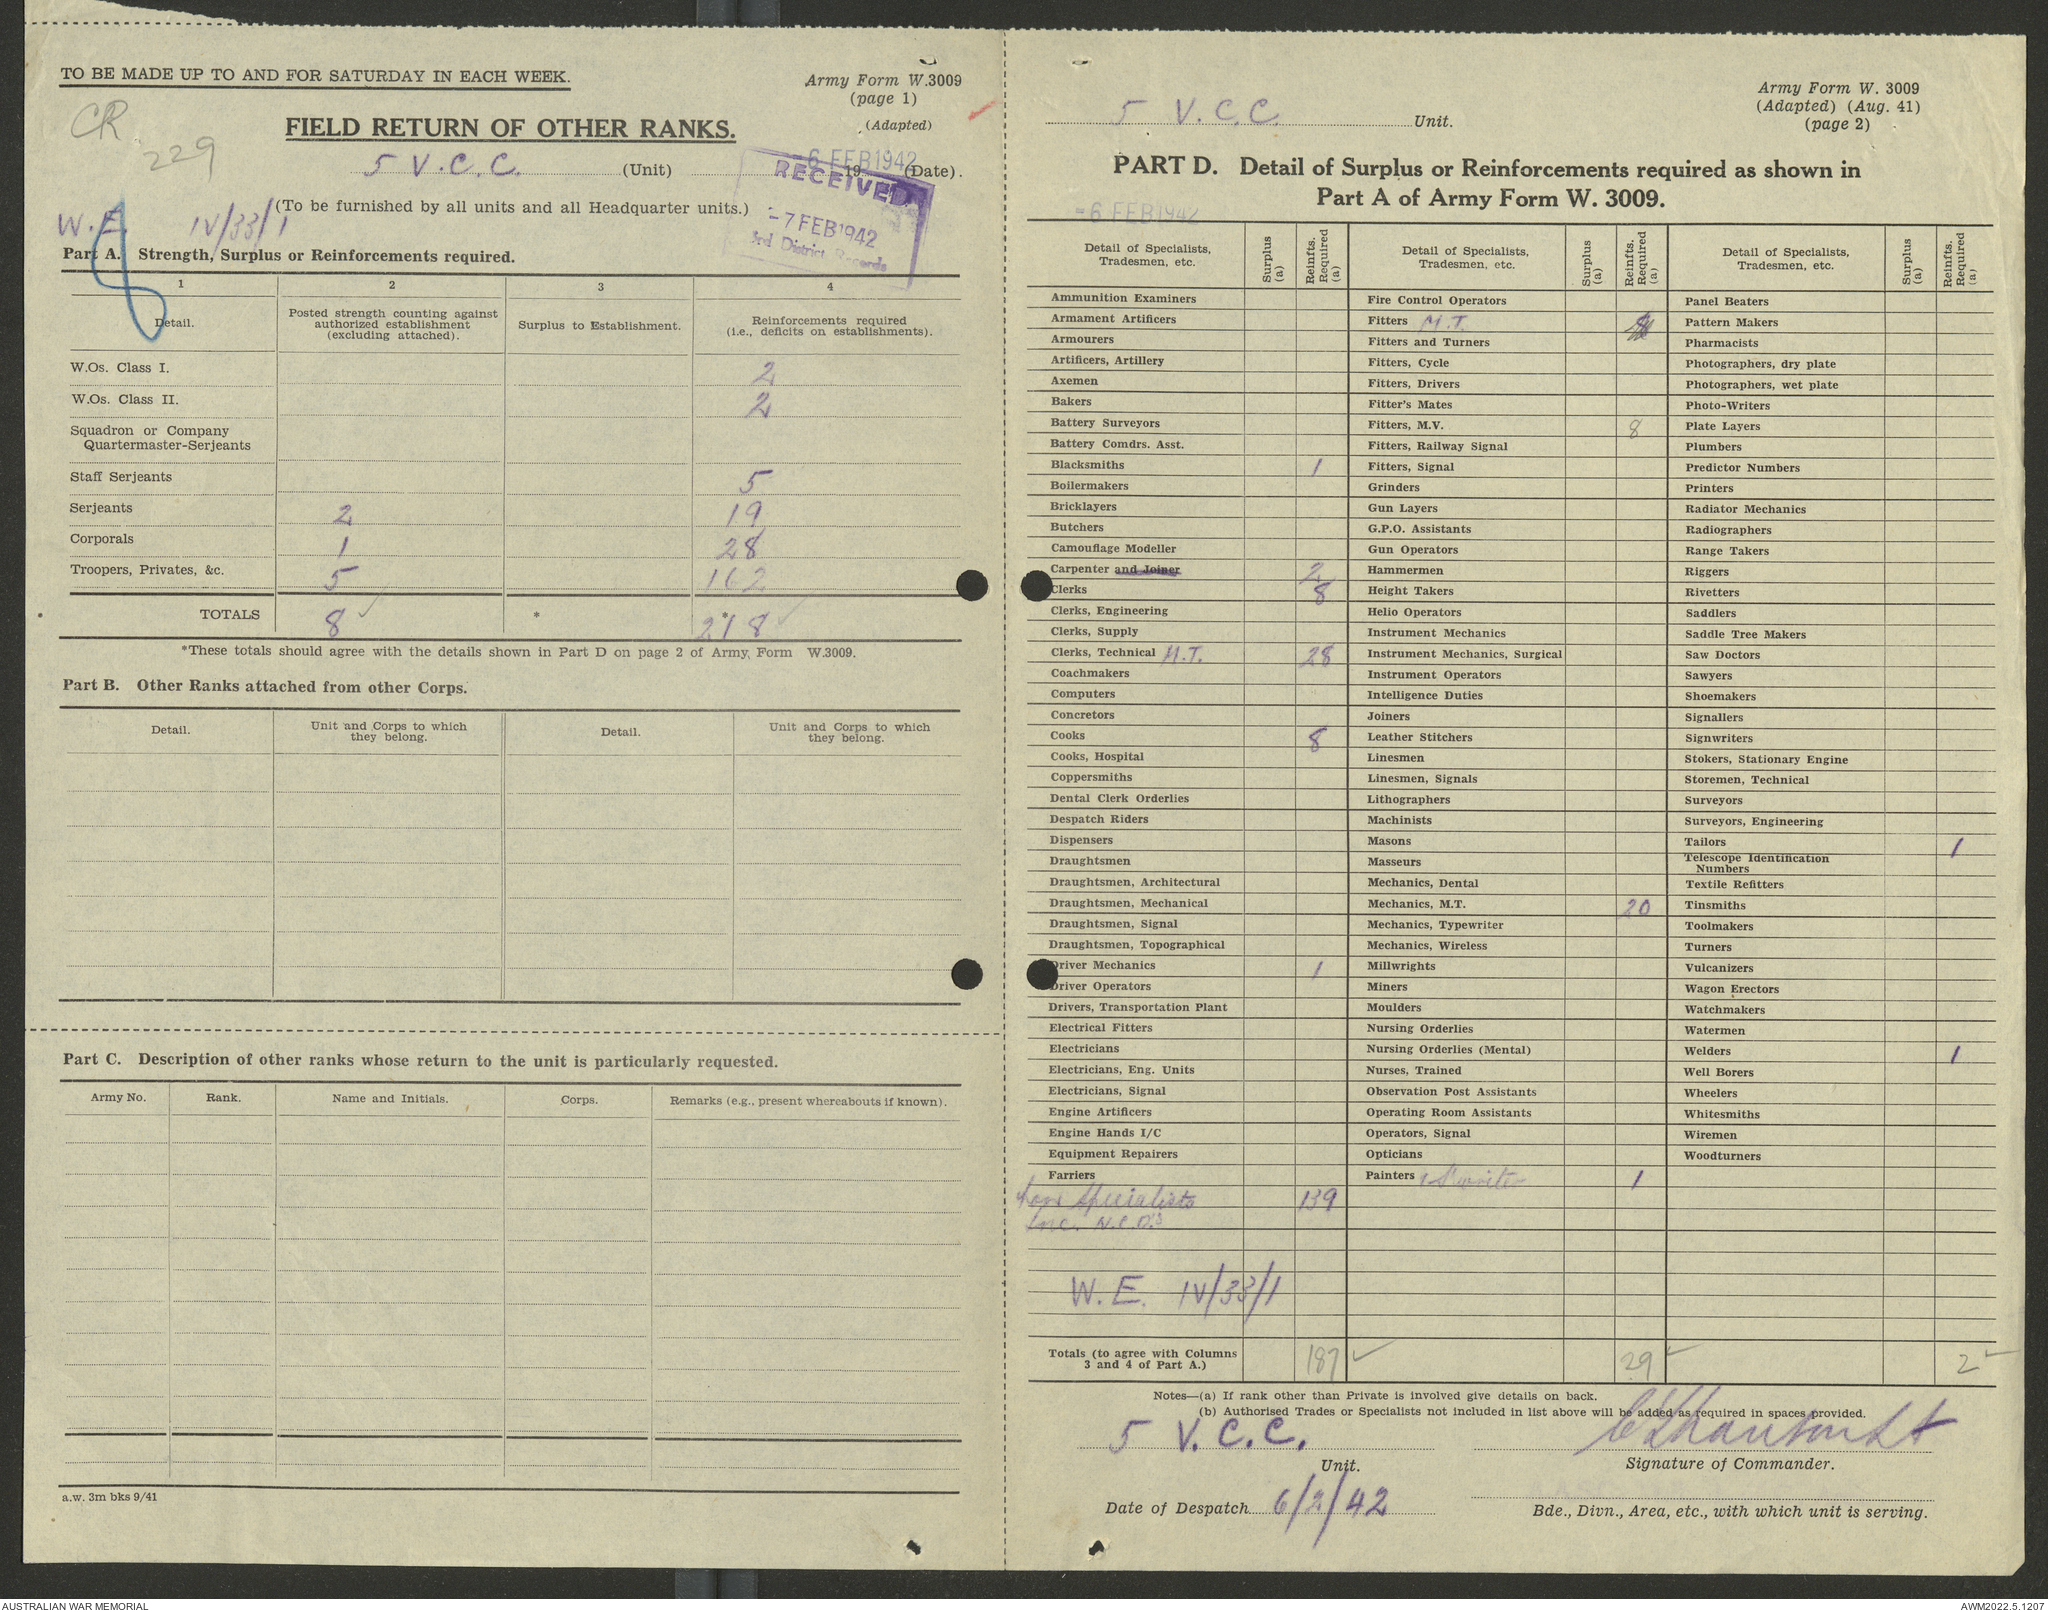 TO BE MADE UP TO AND FOR SATURDAY IN EACH WEEK.
Army Form W.3009
(page 1)
(Adapted)
CR
229
FIELD RETURN OF OTHER RANKS.
5 V.C.C. (Unit) 6 FEB 1942 19 (Date).
(To be furnished by all units and all Headquarter units.)
RECEIVED
-7 FEB 1942
3rd District Records
W.E. IV/33/1
Part A. Strength, Surplus or Reinforcements required.
1 2 3 4
Detail. Posted strength counting against authorized establishment (excluding attached). Surplus to Establishment. Reinforcements required (i.e., deficits on establishments).
W.Os. Class I. 2
W.Os. Class II. 2
Squadron or Company
Quartermaster-Serjeants
Staff Serjeants 5
Serjeants 2 19
Corporals 1 28
Troopers, Privates, &c. 5 162
TOTALS 8 * * 218
*These totals should agree with the details shown in Part D on page 2 of Army Form W.3009.
Part B. Other Ranks attached from other Corps.
Detail. Unit and Corps to which they belong. Detail. Unit and Corps to which they belong.
Part C. Description of other ranks whose return to the unit is particularly requested.
Army No. Rank. Name and Initials. Corps. Remarks (e.g., present whereabouts if known).
a.w. 3m bks 9/41
5 V.C.C. Unit.
Army Form W. 3009
(Adapted) (Aug. 41)
(page 2)
PART D. Detail of Surplus or Reinforcements required as shown in
Part A of Army Form W. 3009.
-6 FEB 1942
Detail of Specialists, Tradesmen, etc. Surplus (a) Reinfts. Required (a)
Ammunition Examiners
Armament Artificers
Armourers
Artificers, Artillery
Axemen
Bakers
Battery Surveyors
Battery Comdrs. Asst.
Blacksmiths 1
Boilermakers
Bricklayers
Butchers
Camouflage Modeller
Carpenter and Joiner 2
Clerks 8
Clerks, Engineering
Clerks, Supply
Clerks, Technical M.T. 28
Coachmakers
Computers
Concretors
Cooks 8
Cooks, Hospital
Coppersmiths
Dental Clerk Orderlies
Despatch Riders
Dispensers
Draughtsmen
Draughtsmen, Architectural
Draughtsmen, Mechanical
Draughtsmen, Signal
Draughtsmen, Topographical
Driver Mechanics 1
Driver Operators
Drivers, Transportation Plant
Electrical Fitters
Electricians
Electricians, Eng. Units
Electricians, Signal
Engine Artificers
Engine Hands I/C
Equipment Repairers
Farriers
Specialists 139
Inc. N.C.O's
W.E. IV/33/1
Detail of Specialists, Tradesmen, etc. Surplus (a) Reinfts. Required (a)
Fire Control Operators
Fitters M.T.
Fitters and Turners
Fitters, Cycle
Fitters, Drivers
Fitter's Mates
Fitters, M.V. 8
Fitters, Railway Signal
Fitters, Signal
Grinders
Gun Layers
G.P.O. Assistants
Gun Operators
Hammermen
Height Takers
Helio Operators
Instrument Mechanics
Instrument Mechanics, Surgical
Instrument Operators
Intelligence Duties
Joiners
Leather Stitchers
Linesmen
Linesmen, Signals
Lithographers
Machinists
Masons
Masseurs
Mechanics, Dental
Mechanics, M.T. 20
Mechanics, Typewriter
Mechanics, Wireless
Millwrights
Miners
Moulders
Nursing Orderlies
Nursing Orderlies (Mental)
Nurses, Trained
Observation Post Assistants
Operating Room Assistants
Operators, Signal
Opticians
Painters 1
Detail of Specialists, Tradesmen, etc. Surplus (a) Reinfts. Required (a)
Panel Beaters
Pattern Makers
Pharmacists
Photographers, dry plate
Photographers, wet plate
Photo-Writers
Plate Layers
Plumbers
Predictor Numbers
Printers
Radiator Mechanics
Radiographers
Range Takers
Riggers
Rivetters
Saddlers
Saddle Tree Makers
Saw Doctors
Sawyers
Shoemakers
Signallers
Signwriters
Stokers, Stationary Engine
Storemen, Technical
Surveyors
Surveyors, Engineering
Tailors 1
Telescope Identification
Numbers
Textile Refitters
Tinsmiths
Toolmakers
Turners
Vulcanizers
Wagon Erectors
Watchmakers
Watermen
Welders 1
Well Borers
Wheelers
Whitesmiths
Wiremen
Woodturners
Totals (to agree with Columns 3 and 4 of Part A.) 187 29 2
Notes—(a) If rank other than Private is involved give details on back.
(b) Authorised Trades or Specialists not included in list above will be added as required in spaces provided.
5 V.C.C.
Unit.
Signature of Commander.
Date of Despatch 6/2/42
Bde., Divn., Area, etc., with which unit is serving.
AUSTRALIAN WAR MEMORIAL
AWM2022.5.1207